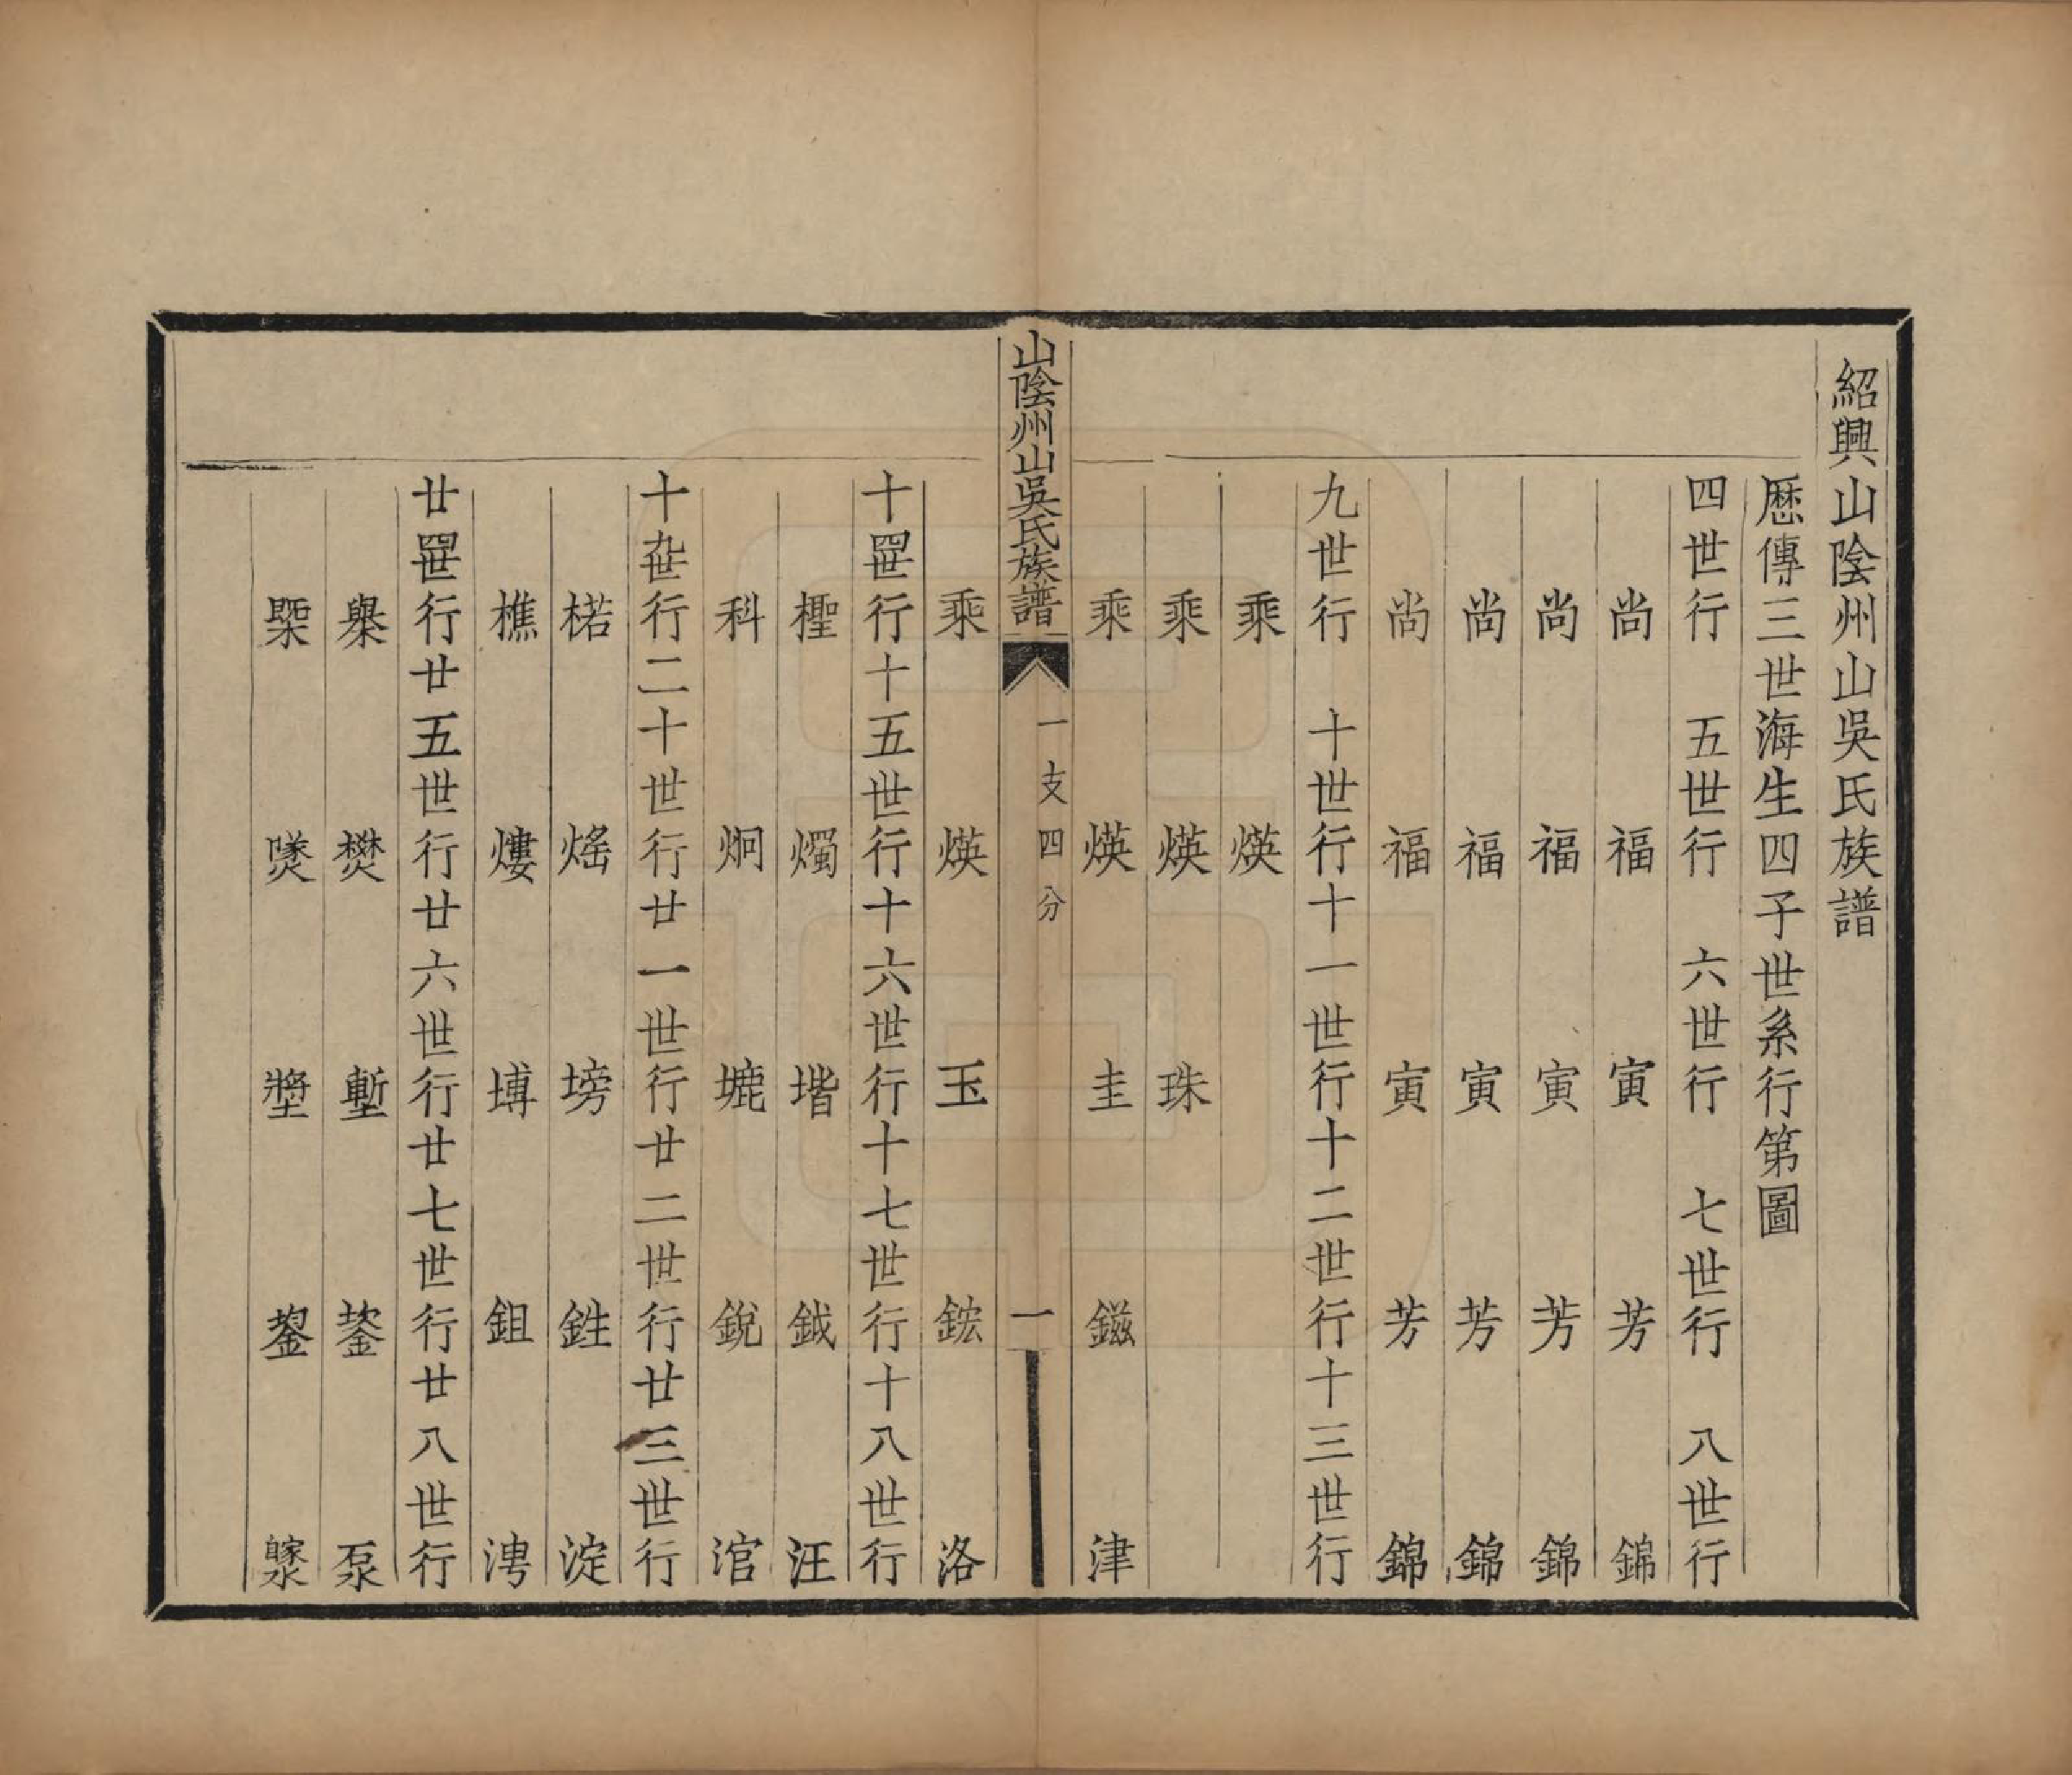 紹興山陰州山吳氏族譜
歷傳三世海生四子世系行第圖
四世行　五世行　六世行　七世行　八世行
尚　福　寅　芳　錦
尚　福　寅　芳　錦
尚　福　寅　芳　錦
尚　福　寅　芳　錦
九世行　十世行十一世行十二世行十三世行
乘　煐
乘　煐　珠
乘　煐　圭　鎡　津
山陰州山吳氏族譜　一支四分　一
乘　煐　玉　鋐　洛
十四世行十五世行十六世行十七世行十八世行
檉　燭　堦　鉞　汪
科　炯　塶　銳　涫
十九世行二十世行廿一世行廿二世行廿三世行
楉　熎　塝　鉎　淀
樵　熡　塼　鉏　涄
廿四世行廿五世行廿六世行廿七世行廿八世行
樊　塹　泵